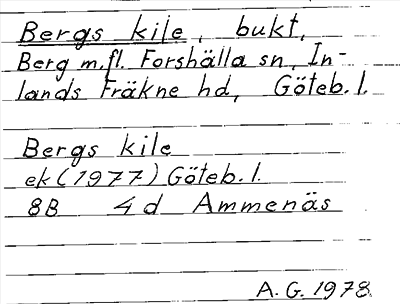 Bergs kile, bukt,
Berg m.fl. Forshälla sn, In-
lands Fräkne hd, Göteb.l.
Bergs kile
ek (1977) Göteb.l.
8B 4d Ammenäs
A.G. 1978